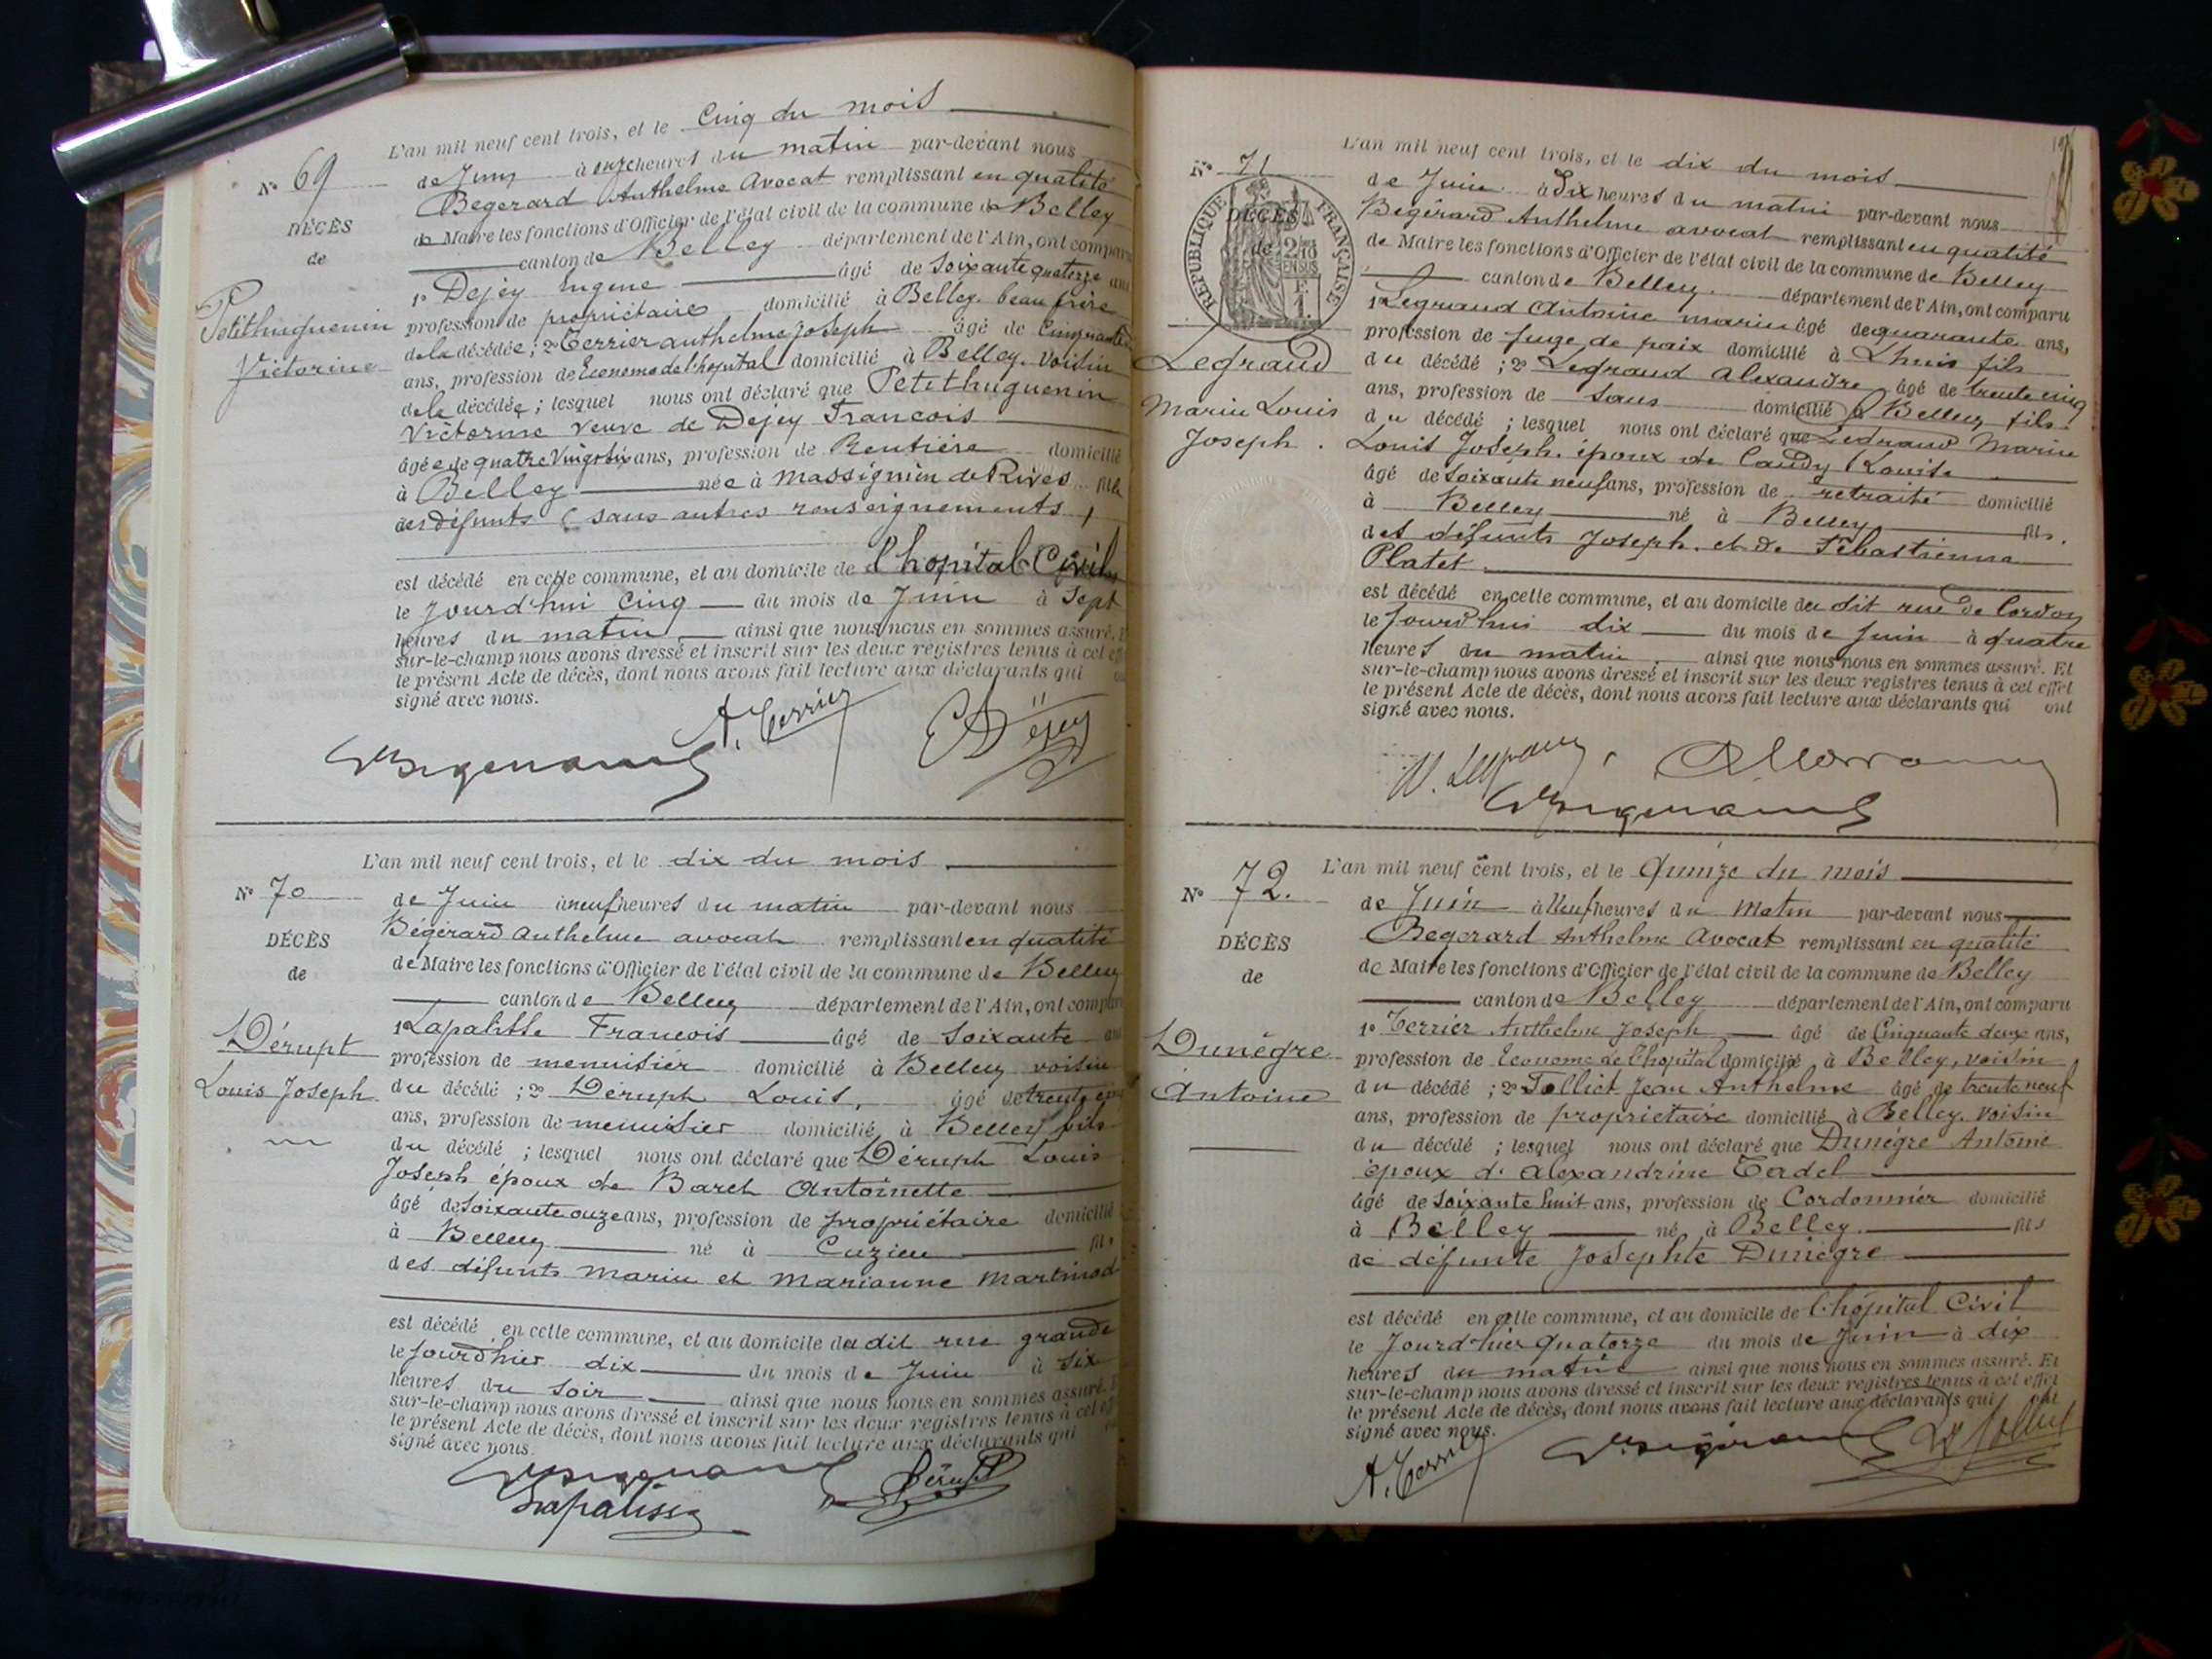 L'an mil neuf cent trois, et le cinq du mois
N° 69
de Juin à onze heures du matin par-devant nous
Begerard Anthelme Avocat remplissant en qualité
DÉCÈS
de Maire les fonctions d'Officier de l'état civil de la commune de Belley
de
canton de Belley département de l'Ain, ont comparu
1° Dejey Eugene âgé de soixante quatorze ans
Petithuguenin
profession de propriétaire domicilié à Belley. beau frère
Victorine
de la décédée; 2° Terrier anthelme Joseph âgé de Cinquante
ans, profession de Econome de l'hopital domicilié à Belley. voisin
de la décédée; lesquel nous ont déclaré que Petithuguenin
Victorine veuve de Dejey Francois
âgée de quatre Vingt six ans, profession de Rentière domicilié
à Belley née à Massignin de Rives fille
des défunts ( sans autres renseignements )
est décédé en cette commune, et au domicile de l'hopital Civil
le Jourd'hui Cinq du mois de Juin à Sept
heures du matin ainsi que nous nous en sommes assuré. E
sur-le-champ nous avons dressé et inscrit sur les deux registres tenus à cet eff
le présent Acte de décès, dont nous avons fait lecture aux déclarants qui
signé avec nous.
A. Terrier
Dejey
L'an mil neuf cent trois, et le dix du mois
N° 70
de Juin à neuf heures du matin par-devant nous
Bégérard Anthelme avocat remplissant en qualité
DÉCÈS
de Maire les fonctions d'Officier de l'état civil de la commune de Belley
de
canton de Belley département de l'Ain, ont comparu
1° Lapalisse Francois âgé de soixante ans
Dérupt
profession de menuisier domicilié à Belley voisin
Louis Joseph
du décédé; 2° Dérupt Louis, âgé de trente cinq
ans, profession de menuisier domicilié à Belley fils
du décédé; lesquel nous ont déclaré que Dérupt Louis
Joseph époux de Barel Antoinette
âgé de soixante onze ans, profession de propriétaire domicilié
à Belley né à Cuzieu fils
des défunts Marin et Marianne Martinod
est décédé en cette commune, et au domicile du dit rue grande
le Jourd'hier dix du mois de Juin à six
heures du soir ainsi que nous nous en sommes assuré. E
sur-le-champ nous avons dressé et inscrit sur les deux registres tenus à cet ef
le présent Acte de décès, dont nous avons fait lecture aux déclarants qui
signé avec nous.
Lapalisse
Dérupt
L'an mil neuf cent trois, et le dix du mois
N° 71
de Juin à Dix heures du matin par-devant nous
Begérard Anthelme avocat remplissant en qualité
DÉCÈS
de Maire les fonctions d'Officier de l'état civil de la commune de Belley
de
RÉPUBLIQUE FRANÇAISE
canton de Belley département de l'Ain, ont comparu
1° Legrand Antoine marin âgé de quarante ans,
Legrand
profession de Juge de paix domicilié à Lhuis fils
Marin Louis
du décédé; 2° Legrand Alexandre âgé de trente cinq
Joseph.
ans, profession de sans domicilié à Belley fils
du décédé; lesquel nous ont déclaré que Legrand Marin
Louis Joseph. époux de Caudy Louise
âgé de soixante neuf ans, profession de retraité domicilié
à Belley né à Belley fils.
des défunts Joseph. et de Sébastienne
Platet
est décédé en cette commune, et au domicile du dit rue de Cordon
le Jourd'hui dix du mois de Juin à quatre
heures du matin ainsi que nous nous en sommes assuré. Et
sur-le-champ nous avons dressé et inscrit sur les deux registres tenus à cet effet
le présent Acte de décès, dont nous avons fait lecture aux déclarants qui ont
signé avec nous.
L'an mil neuf cent trois, et le Quinze du mois
N° 72.
de Juin à Neuf heures du Matin par-devant nous
Begerard Anthelme Avocat remplissant en qualité
DÉCÈS
de Maire les fonctions d'Officier de l'état civil de la commune de Belley
de
canton de Belley département de l'Ain, ont comparu
1° Terrier Anthelme Joseph âgé de Cinquante deux ans,
Dunégre
profession de Econome de l'hopital domicilié à Belley, voisin
Antoine
du décédé; 2° Tolliet Jean Anthelme âgé de trente neuf
ans, profession de propriétaire domicilié à Belley. voisin
du décédé; lesquel nous ont déclaré que Dunégre Antoine
époux d'Alexandrine Tardel
âgé de soixante huit ans, profession de Cordonnier domicilié
à Belley né à Belley. fils
de défunte Josephte Dunégre
est décédé en cette commune, et au domicile de l'hôpital Civil
le Jourd'hier quatorze du mois de Juin à dix
heures du matin ainsi que nous nous en sommes assuré. Et
sur-le-champ nous avons dressé et inscrit sur les deux registres tenus à cet effet
le présent Acte de décès, dont nous avons fait lecture aux déclarants qui ont
signé avec nous.
A. Terrier